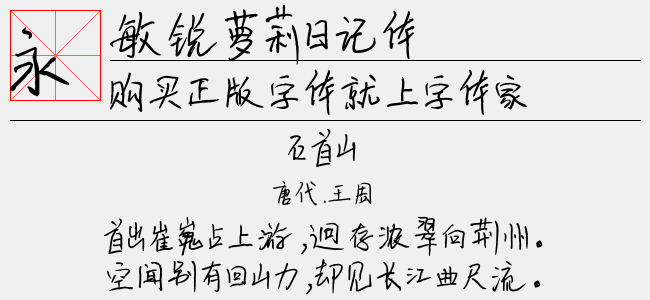 永
敏锐萝莉日记体
购买正版字体就上字体家
石首山
唐代.王周
首出崔嵬占上游,迴存浓翠向荆州。
空闻别有回山力,却见长江曲尺流。